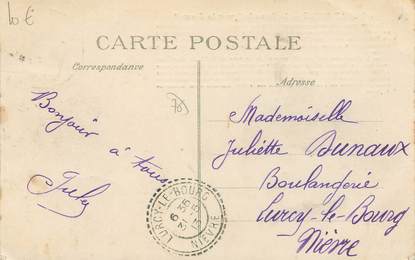 10€
CARTE POSTALE
Correspondance
Adresse
78
Bonjour
à tous
Mademoiselle
Juliette Dunaux
Boulangerie
Lurcy-le-Bourg
Nièvre
LURCY-LE-BOURG
6 35
NIÈVRE